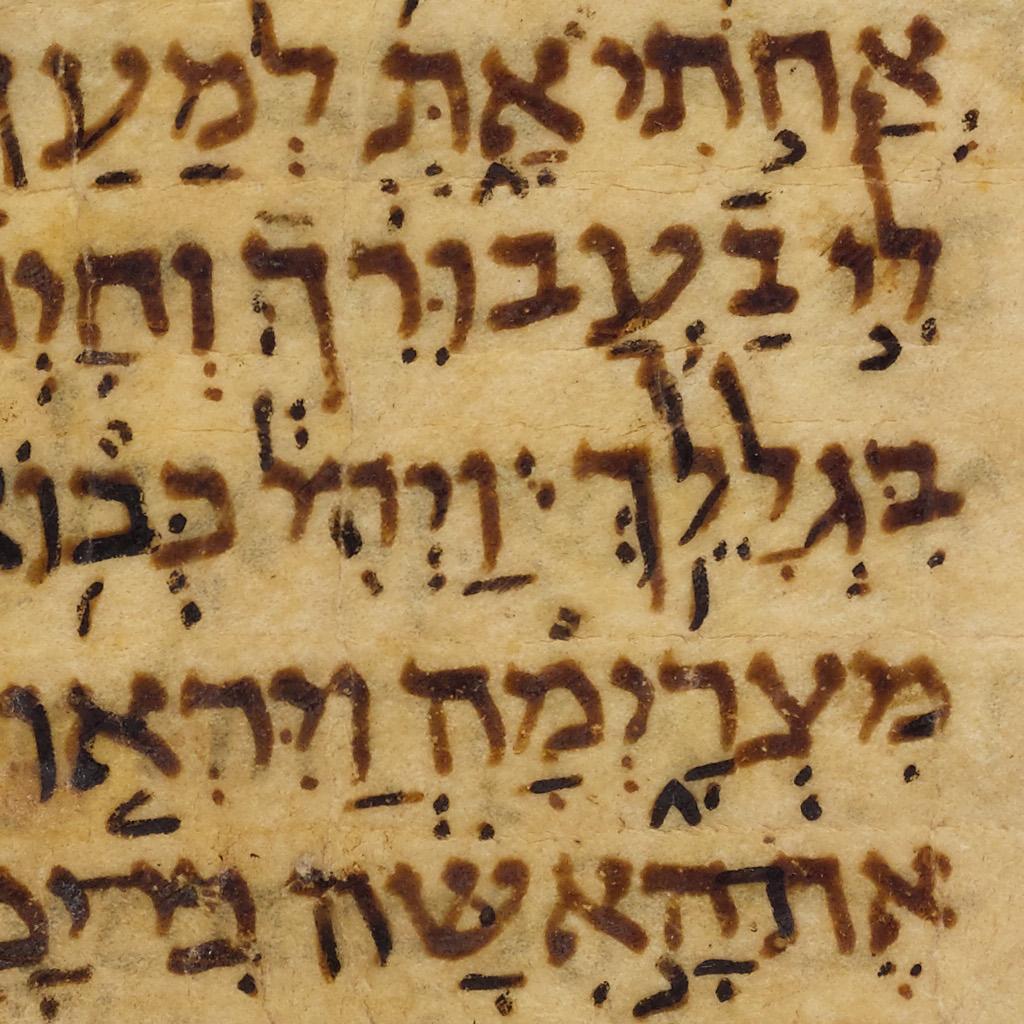 אֲחֹתִי אָתְּ לְמַעַן
לִי בַעֲבוּרֵךְ
בִּגְלָלֵךְ׃ וַיְהִי כְּבוֹא
מִצְרָיְמָה וַיִּרְאוּ
אֶת הָאִשָּׁה